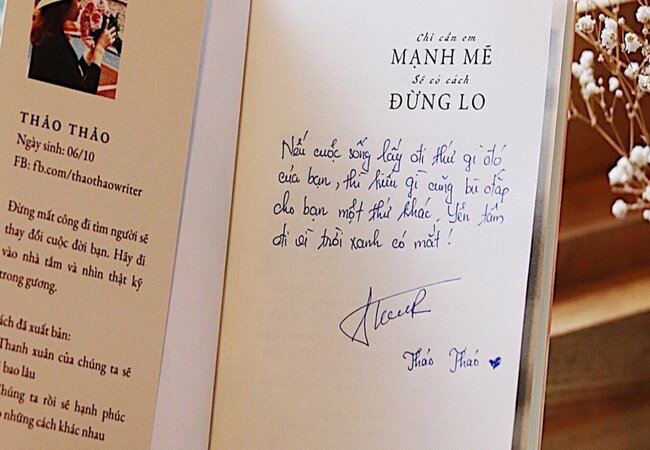 THẢO THẢO
Ngày sinh: 06/10
FB: fb.com/thaothaowriter
Đừng mất công đi tìm người sẽ
thay đổi cuộc đời bạn. Hãy đi
vào nhà tắm và nhìn thật kỹ
trong gương.
ách đã xuất bản:
Thanh xuân của chúng ta sẽ
bao lâu
Chúng ta rồi sẽ hạnh phúc
những cách khác nhau
Chỉ cần em
MẠNH MẼ
Sẽ có cách
ĐỪNG LO
Nếu cuộc sống lấy đi thứ gì đó
của bạn, thì kiểu gì cũng bù đắp
cho bạn một thứ khác. Yên tâm
đi vì trời xanh có mắt!
Thảo Thảo